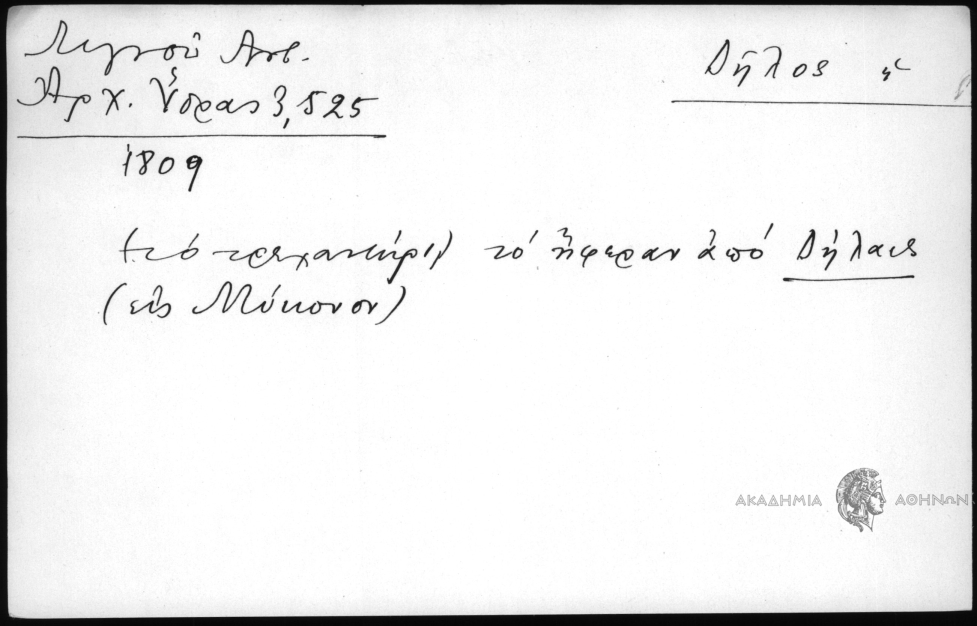 Λιγνοῦ Ἀντ.
Ἀρχ. Ὕδρας 3,525
Δῆλος ἡ
1809
(τό τρεχαντήρι) τό ἤφεραν ἀπό Δήλαις
(εἰς Μύκονον)
ΑΚΑΔΗΜΙΑ ΑΘΗΝΩΝ